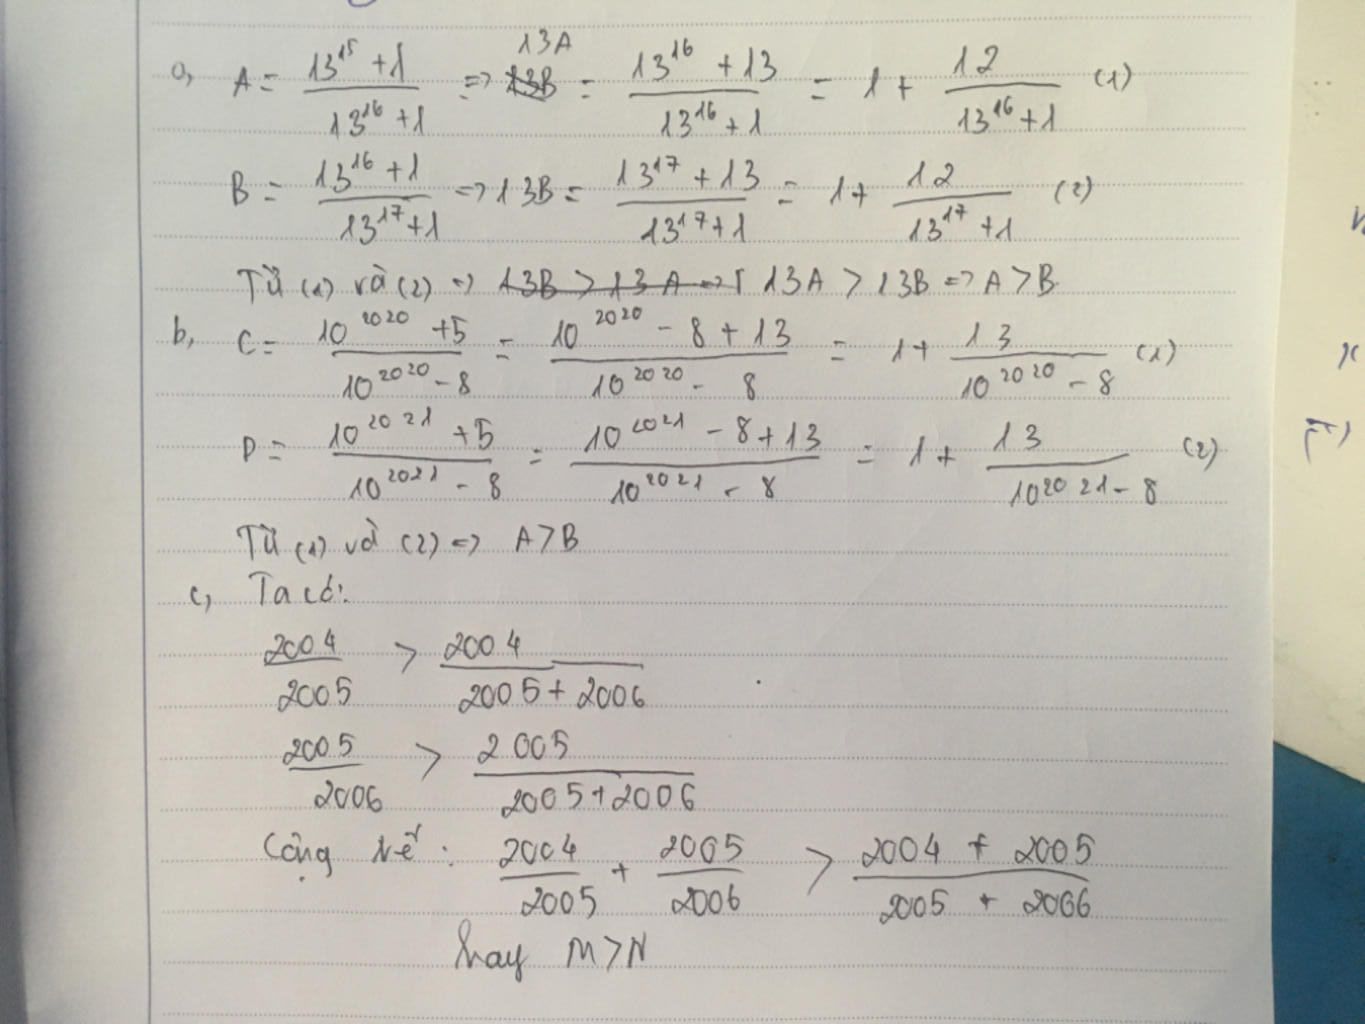 a, A = (13^15 + 1)/(13^16 + 1) => 13A = (13^16 + 13)/(13^16 + 1) = 1 + 12/(13^16 + 1) (1)
B = (13^16 + 1)/(13^17 + 1) => 13B = (13^17 + 13)/(13^17 + 1) = 1 + 12/(13^17 + 1) (2)
Từ (1) và (2) => 13A > 13B => A > B
b, C = (10^2020 + 5)/(10^2020 - 8) = (10^2020 - 8 + 13)/(10^2020 - 8) = 1 + 13/(10^2020 - 8) (1)
D = (10^2021 + 5)/(10^2021 - 8) = (10^2021 - 8 + 13)/(10^2021 - 8) = 1 + 13/(10^2021 - 8) (2)
Từ (1) và (2) => A > B
c, Ta có:
2004/2005 > 2004/(2005 + 2006)
2005/2006 > 2005/(2005 + 2006)
Cộng vế: 2004/2005 + 2005/2006 > (2004 + 2005)/(2005 + 2006)
hay M > N